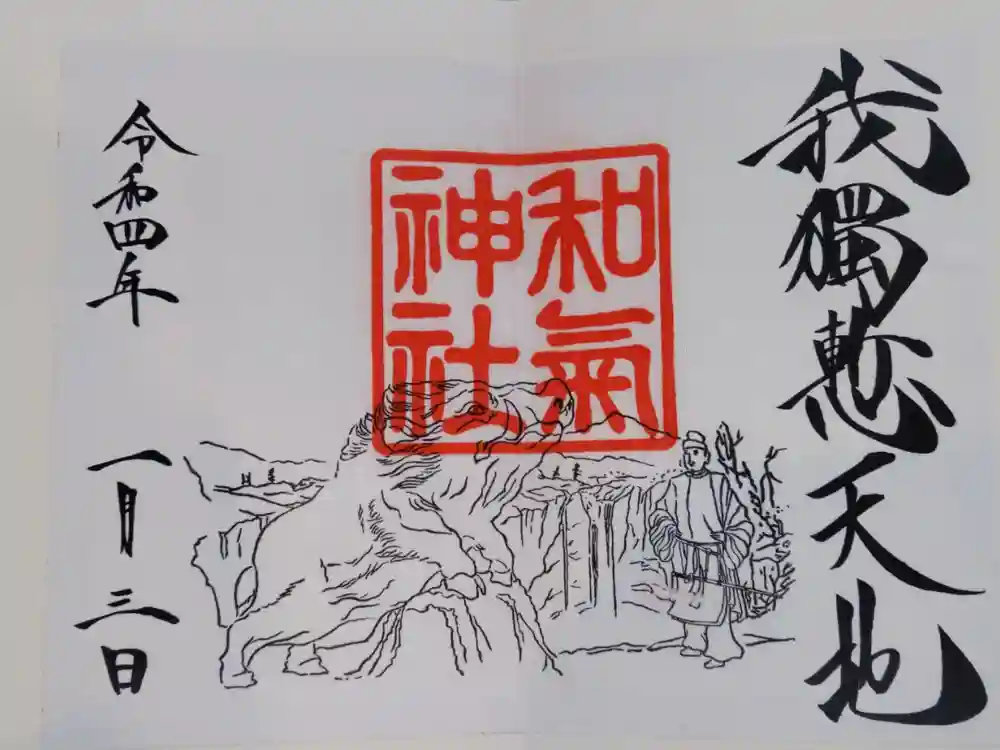 我獨慙天地
和氣
神社
令和四年一月三日